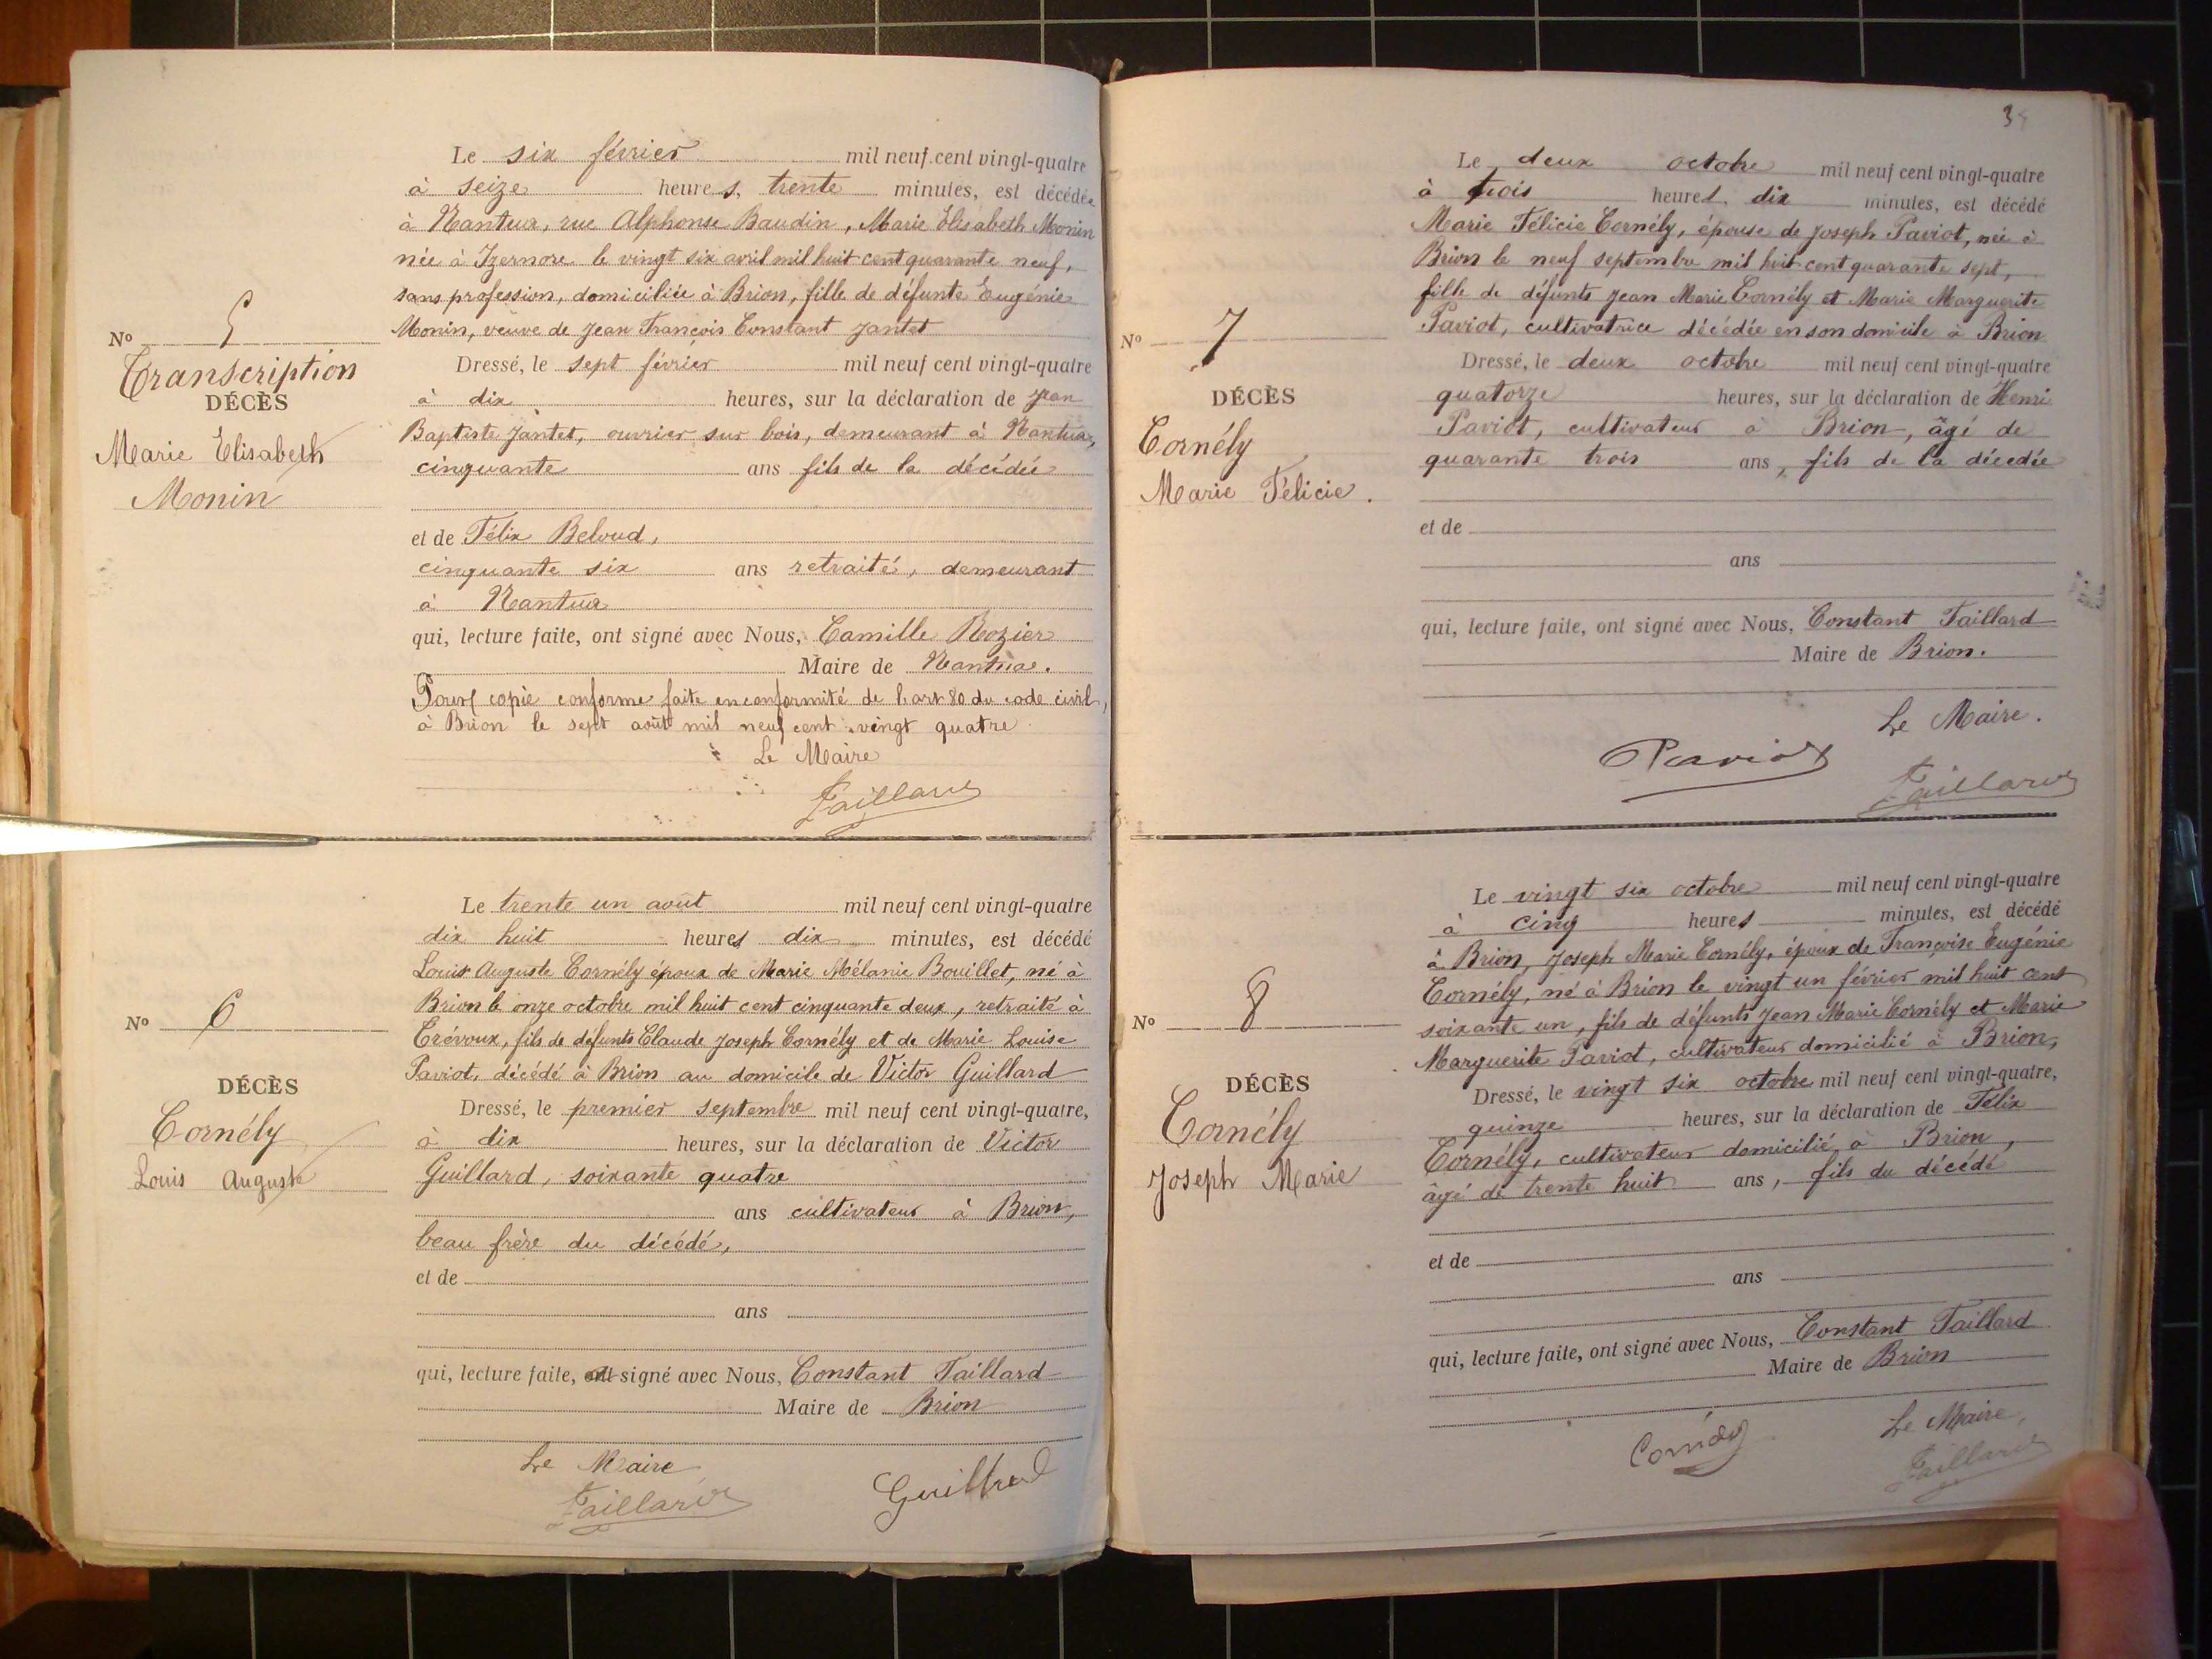 Le six février mil neuf cent vingt-quatre
à seize heures, trente minutes, est décédée
à Nantua, rue Alphonse Baudin, Marie Élisabeth Monin
née à Izernore le vingt six avril mil huit cent quarante neuf,
sans profession, domiciliée à Brion, fille de défunte Eugénie
Monin, veuve de Jean François Constant Jantet
N° 5
Transcription
DÉCÈS
Marie Elisabeth
Monin
Dressé, le sept février mil neuf cent vingt-quatre
à dix heures, sur la déclaration de Jean
Baptiste Jantet, ouvrier sur bois, demeurant à Nantua,
cinquante ans fils de la décédée
et de Félix Beloud,
cinquante six ans retraité, demeurant
à Nantua
qui, lecture faite, ont signé avec Nous, Camille Rozier
Maire de Nantua.
Pour copie conforme faite en conformité de l'art 80 du code civil,
à Brion le sept août mil neuf cent vingt quatre
Le Maire
Taillard
Le trente un août mil neuf cent vingt-quatre
dix huit heures dix minutes, est décédé
Louis Auguste Cornély époux de Marie Mélanie Bouillet, né à
Brion le onze octobre mil huit cent cinquante deux, retraité à
Trévoux, fils de défunts Claude Joseph Cornély et de Marie Louise
Paviot, décédé à Brion au domicile de Victor Guillard
N° 6
DÉCÈS
Cornély
Louis Auguste
Dressé, le premier septembre mil neuf cent vingt-quatre,
à dix heures, sur la déclaration de Victor
Guillard, soixante quatre
ans cultivateur à Brion,
beau frère du décédé,
et de
ans
qui, lecture faite, ont signé avec Nous, Constant Taillard
Maire de Brion
Le Maire
Taillard
Guillard
3
Le deux octobre mil neuf cent vingt-quatre
à trois heures dix minutes, est décédé
Marie Félicie Cornély, épouse de Joseph Paviot, née à
Brion le neuf septembre mil huit cent quarante sept,
fille de défunts Jean Marie Cornély et Marie Marguerite
Paviot, cultivatrice décédée en son domicile à Brion
N° 7
DÉCÈS
Cornély
Marie Félicie.
Dressé, le deux octobre mil neuf cent vingt-quatre
quatorze heures, sur la déclaration de Henri
Paviot, cultivateur à Brion, âgé de
quarante trois ans, fils de la décédée
et de
ans
qui, lecture faite, ont signé avec Nous, Constant Taillard
Maire de Brion.
Le Maire.
Paviot
Taillard
Le vingt six octobre mil neuf cent vingt-quatre
à cinq heures minutes, est décédé
à Brion, Joseph Marie Cornély, époux de Françoise Eugénie
Cornély, né à Brion le vingt un février mil huit cent
soixante un, fils de défunts Jean Marie Cornély et Marie
Marguerite Paviot, cultivateur domicilié à Brion,
N° 8
DÉCÈS
Cornély
Joseph Marie
Dressé, le vingt six octobre mil neuf cent vingt-quatre,
quinze heures, sur la déclaration de Félix
Cornély, cultivateur domicilié à Brion,
âgé de trente huit ans, fils du décédé
et de
ans
qui, lecture faite, ont signé avec Nous, Constant Taillard
Maire de Brion
Le Maire,
Cornély
Taillard